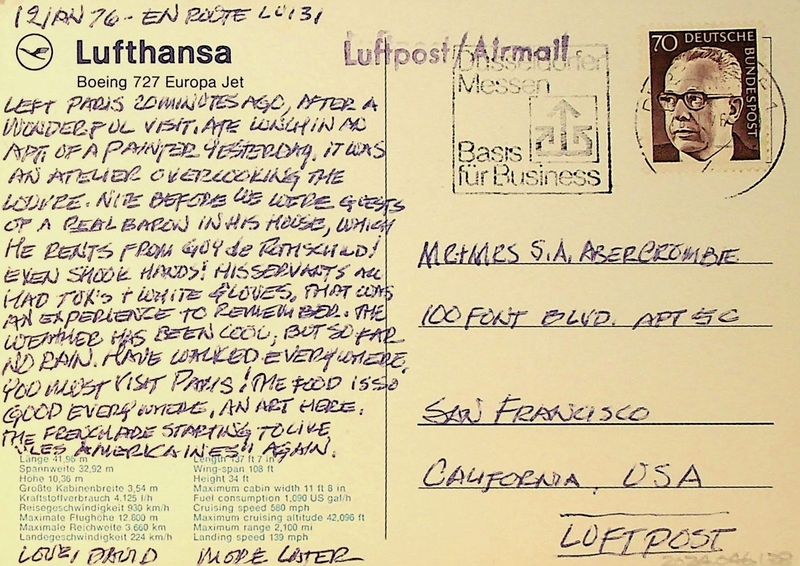 12 JAN 76 - EN ROUTE LU 131
Lufthansa
Boeing 727 Europa Jet
LEFT PARIS 20 MINUTES AGO, AFTER A
WONDERFUL VISIT. ATE LUNCH IN AN
APT. OF A PAINTER YESTERDAY. IT WAS
AN ATELIER OVERLOOKING THE
LOUVRE. NITE BEFORE WE WERE GUESTS
OF A REAL BARON IN HIS HOUSE, WHICH
HE RENTS FROM GUY de ROTHSCHILD!
EVEN SHOOK HANDS! HIS SERVANTS ALL
HAD TUX'S + WHITE GLOVES, THAT WAS
AN EXPERIENCE TO REMEMBER. THE
WEATHER HAS BEEN COOL, BUT SO FAR
NO RAIN. HAVE WALKED EVERYWHERE.
YOU MUST VISIT PARIS! THE FOOD IS SO
GOOD EVERYWHERE, AN ART HERE.
THE FRENCH ARE STARTING TO LIKE
"LES AMERICAINES" AGAIN.
Länge 41,96 m
Spannweite 32,92 m
Höhe 10,36 m
Größte Kabinenbreite 3,54 m
Kraftstoffverbrauch 4.125 l/h
Reisegeschwindigkeit 930 km/h
Maximale Flughöhe 12.800 m
Maximale Reichweite 3.660 km
Landegeschwindigkeit 224 km/h
Length 137 ft 7 in
Wing-span 108 ft
Height 34 ft
Maximum cabin width 11 ft 8 in
Fuel consumption 1,090 US gal/h
Cruising speed 580 mph
Maximum cruising altitude 42,096 ft
Maximum range 2,100 mi
Landing speed 139 mph
LOVE, DAVID MORE LATER
Luftpost/Airmail
Düsseldorfer
Messen
Basis
für Business
70 DEUTSCHE
BUNDESPOST
MR + MRS S.A. ABERCROMBIE
100 FONT BLVD. APT 5C
SAN FRANCISCO
CALIFORNIA, USA
LUFTPOST